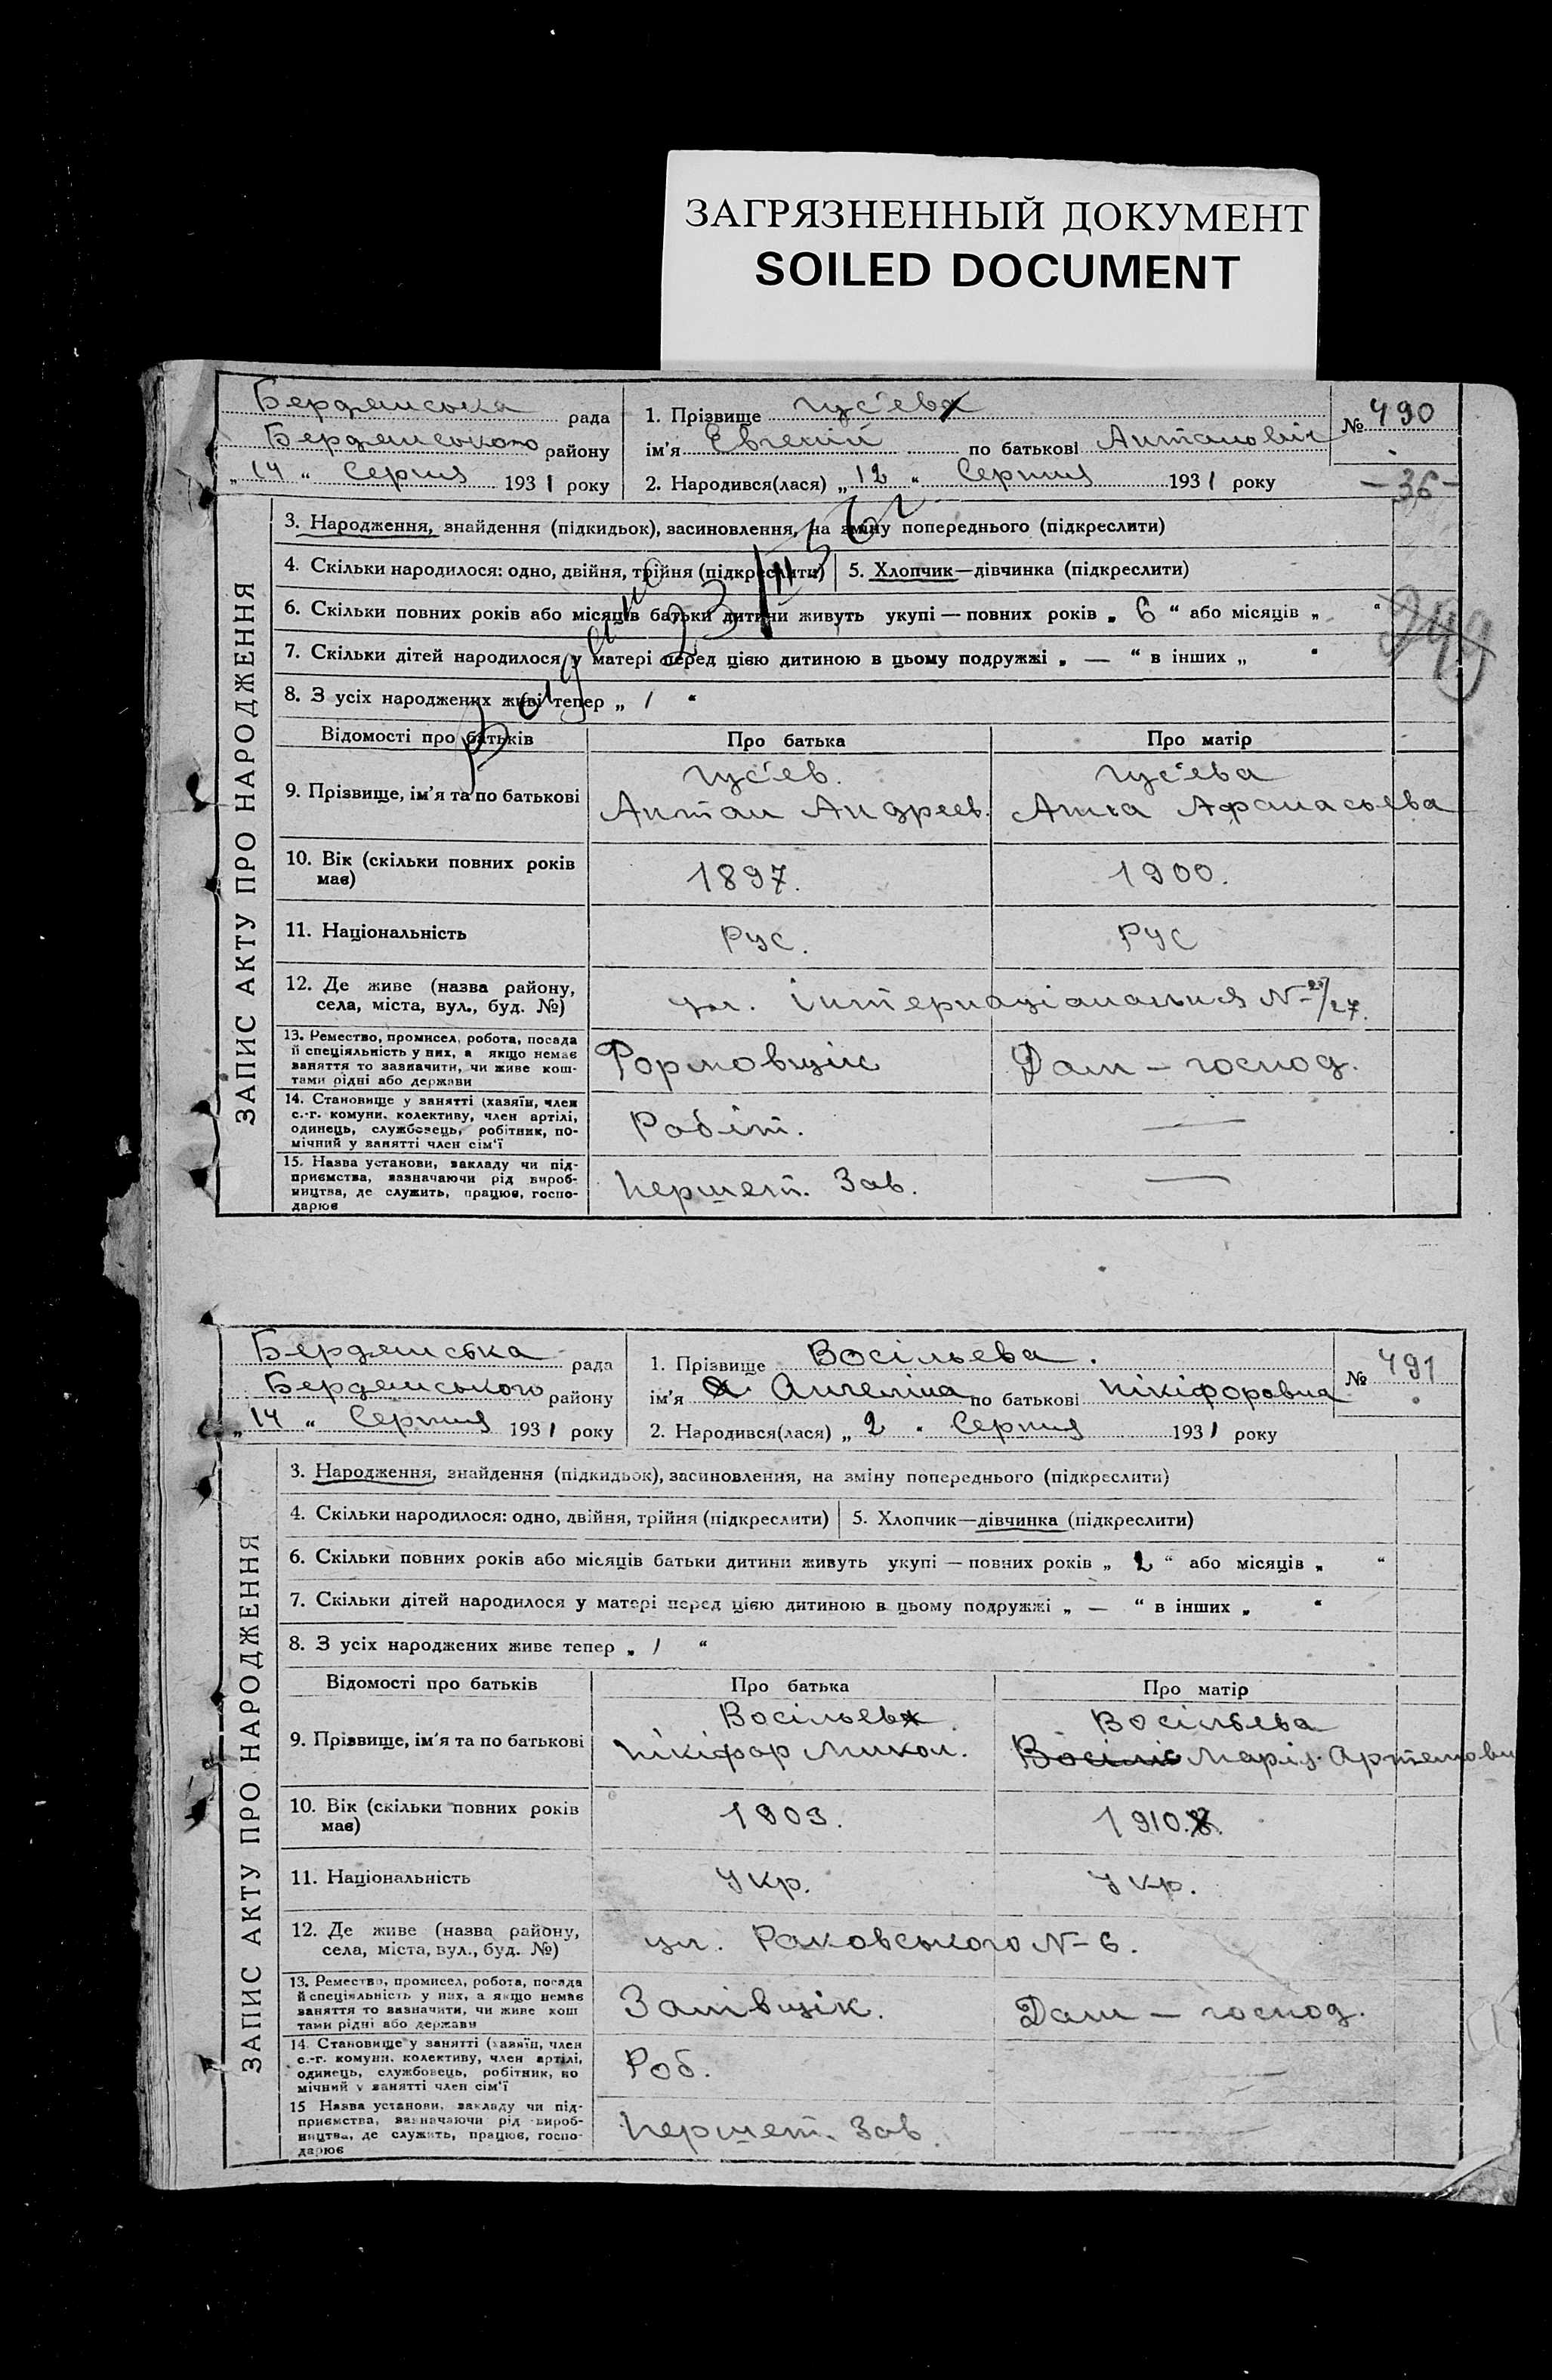 ЗАГРЯЗНЕННЫЙ ДОКУМЕНТ
SOILED DOCUMENT
Бердянська рада
Бердянського району
„ 14 “ Серпня 1931 року
1. Прізвище Гус'ев
ім'я Евгеній по батькові Антанович
2. Народився(лася) „ 12 “ Серпня 1931 року
№ 490
- 36 -
ЗАПИС АКТУ ПРО НАРОДЖЕННЯ
3. Народження, знайдення (підкидьок), засиновлення, на зміну попереднього (підкреслити)
4. Скільки народилося: одно, двійня, трійня (підкреслити) 5. Хлопчик—дівчинка (підкреслити)
6. Скільки повних років або місяців батьки дитини живуть укупі — повних років „ 6 “ або місяців „ “
7. Скільки дітей народилося у матері перед цією дитиною в цьому подружжі „ — “ в інших „ “
8. З усіх народжених живі тепер „ 1 “
Відомості про батьків Про батька Про матір
9. Прізвище, ім'я та по батькові
Гус'ев. Гус'ева
Антан Андреев. Анна Афанасьева
10. Вік (скільки повних років має) 1897. 1900.
11. Національність рус. рус
12. Де живе (назва району,
села, міста, вул., буд. №)
ул. Інтернаціанальня №
13. Ремество, промисел, робота, посада
й спеціяльність у них, а якщо немає
заняття то зазначити, чи живе кош-
тами рідні або держави
Формовщік Дам – господ.
14. Становище у занятті (хазяїн, член
с.-г. комуни, колективу, член артілі,
одинець, службовець, робітник, по-
мічний у занятті член сім'ї
Робіт. —
15. Назва установи, закладу чи під-
приємства, зазначаючи рід вироб-
ництва, де служить, працює, госпо-
дарює
Першет. Зав. —
Бердянська рада
Бердянського району
„ 14 “ Серпня 1931 року
1. Прізвище Восільева.
ім'я Ангеліна по батькові Нікіфоровна
2. Народився(лася) „ 2 “ Серпня 1931 року
№ 491
ЗАПИС АКТУ ПРО НАРОДЖЕННЯ
3. Народження, знайдення (підкидьок), засиновлення, на зміну попереднього (підкреслити)
4. Скільки народилося: одно, двійня, трійня (підкреслити) 5. Хлопчик—дівчинка (підкреслити)
6. Скільки повних років або місяців батьки дитини живуть укупі — повних років „ 2 “ або місяців „ “
7. Скільки дітей народилося у матері перед цією дитиною в цьому подружжі „ — “ в інших „ “
8. З усіх народжених живе тепер „ 1 “
Відомості про батьків Про батька Про матір
9. Прізвище, ім'я та по батькові
Восільев Восільева
Нікіфор Микол. Марія Артемовн
10. Вік (скільки повних років має) 1903. 1910.
11. Національність Укр. Укр.
12. Де живе (назва району,
села, міста, вул., буд. №)
ул. Раковського № 6.
13. Ремество, промисел, робота, посада
й спеціяльність у них, а якщо немає
заняття то зазначити, чи живе кош
тами рідні або держави
Залівщік. Дам – господ.
14. Становище у занятті (хазяїн, член
с.-г. комуни, колективу, член артілі,
одинець, службовець, робітник, по
мічний у занятті член сім'ї
Роб. —
15 Назва установи, закладу чи під-
приємства, зазначаючи рід вироб-
ництва, де служить, працює, госпо-
дарює
Першет. Зав. —